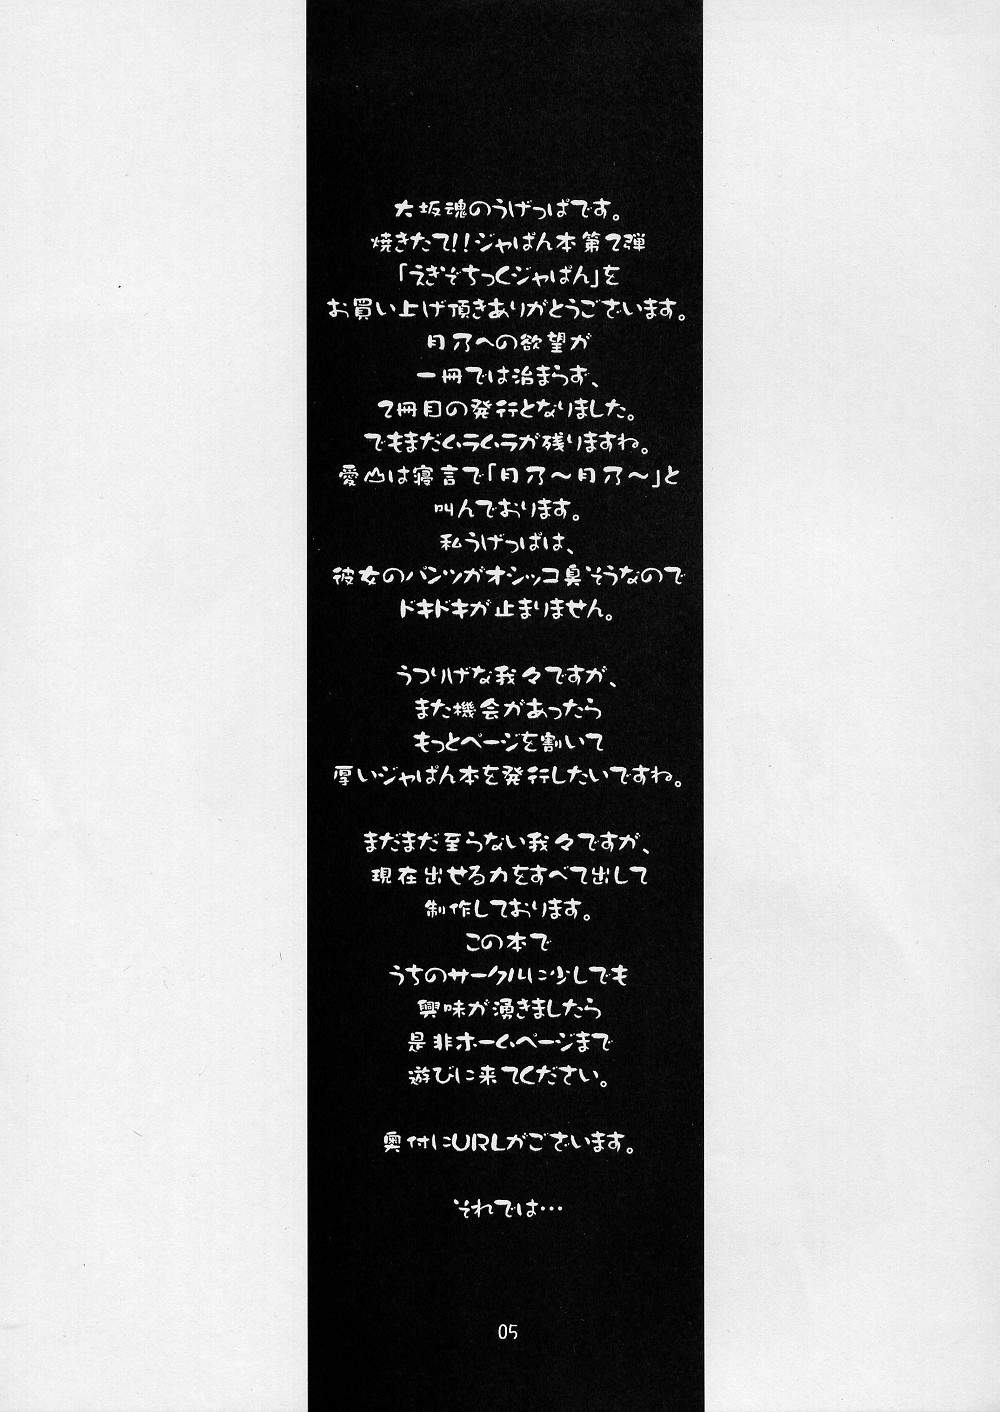 大坂魂のうげっぱです。
焼きたて!!ジャぱん本第2弾
「えきぞちっくジャぱん」を
お買い上げ頂きありがとうございます。
月乃への欲望が
一冊では治まらず、
2冊目の発行となりました。
でもまだムラムラが残りますね。
愛山は寝言で「月乃〜月乃〜」と
叫んでおります。
私うげっぱは、
彼女のパンツがオシッコ臭そうなので
ドキドキが止まりません。
うつりげな我々ですが、
また機会があったら
もっとページを割いて
厚いジャぱん本を発行したいですね。
まだまだ至らない我々ですが、
現在出せる力をすべて出して
制作しております。
この本で
うちのサークルに少しでも
興味が湧きましたら
是非ホームページまで
遊びに来てください。
奥付にURLがございます。
それでは…
05